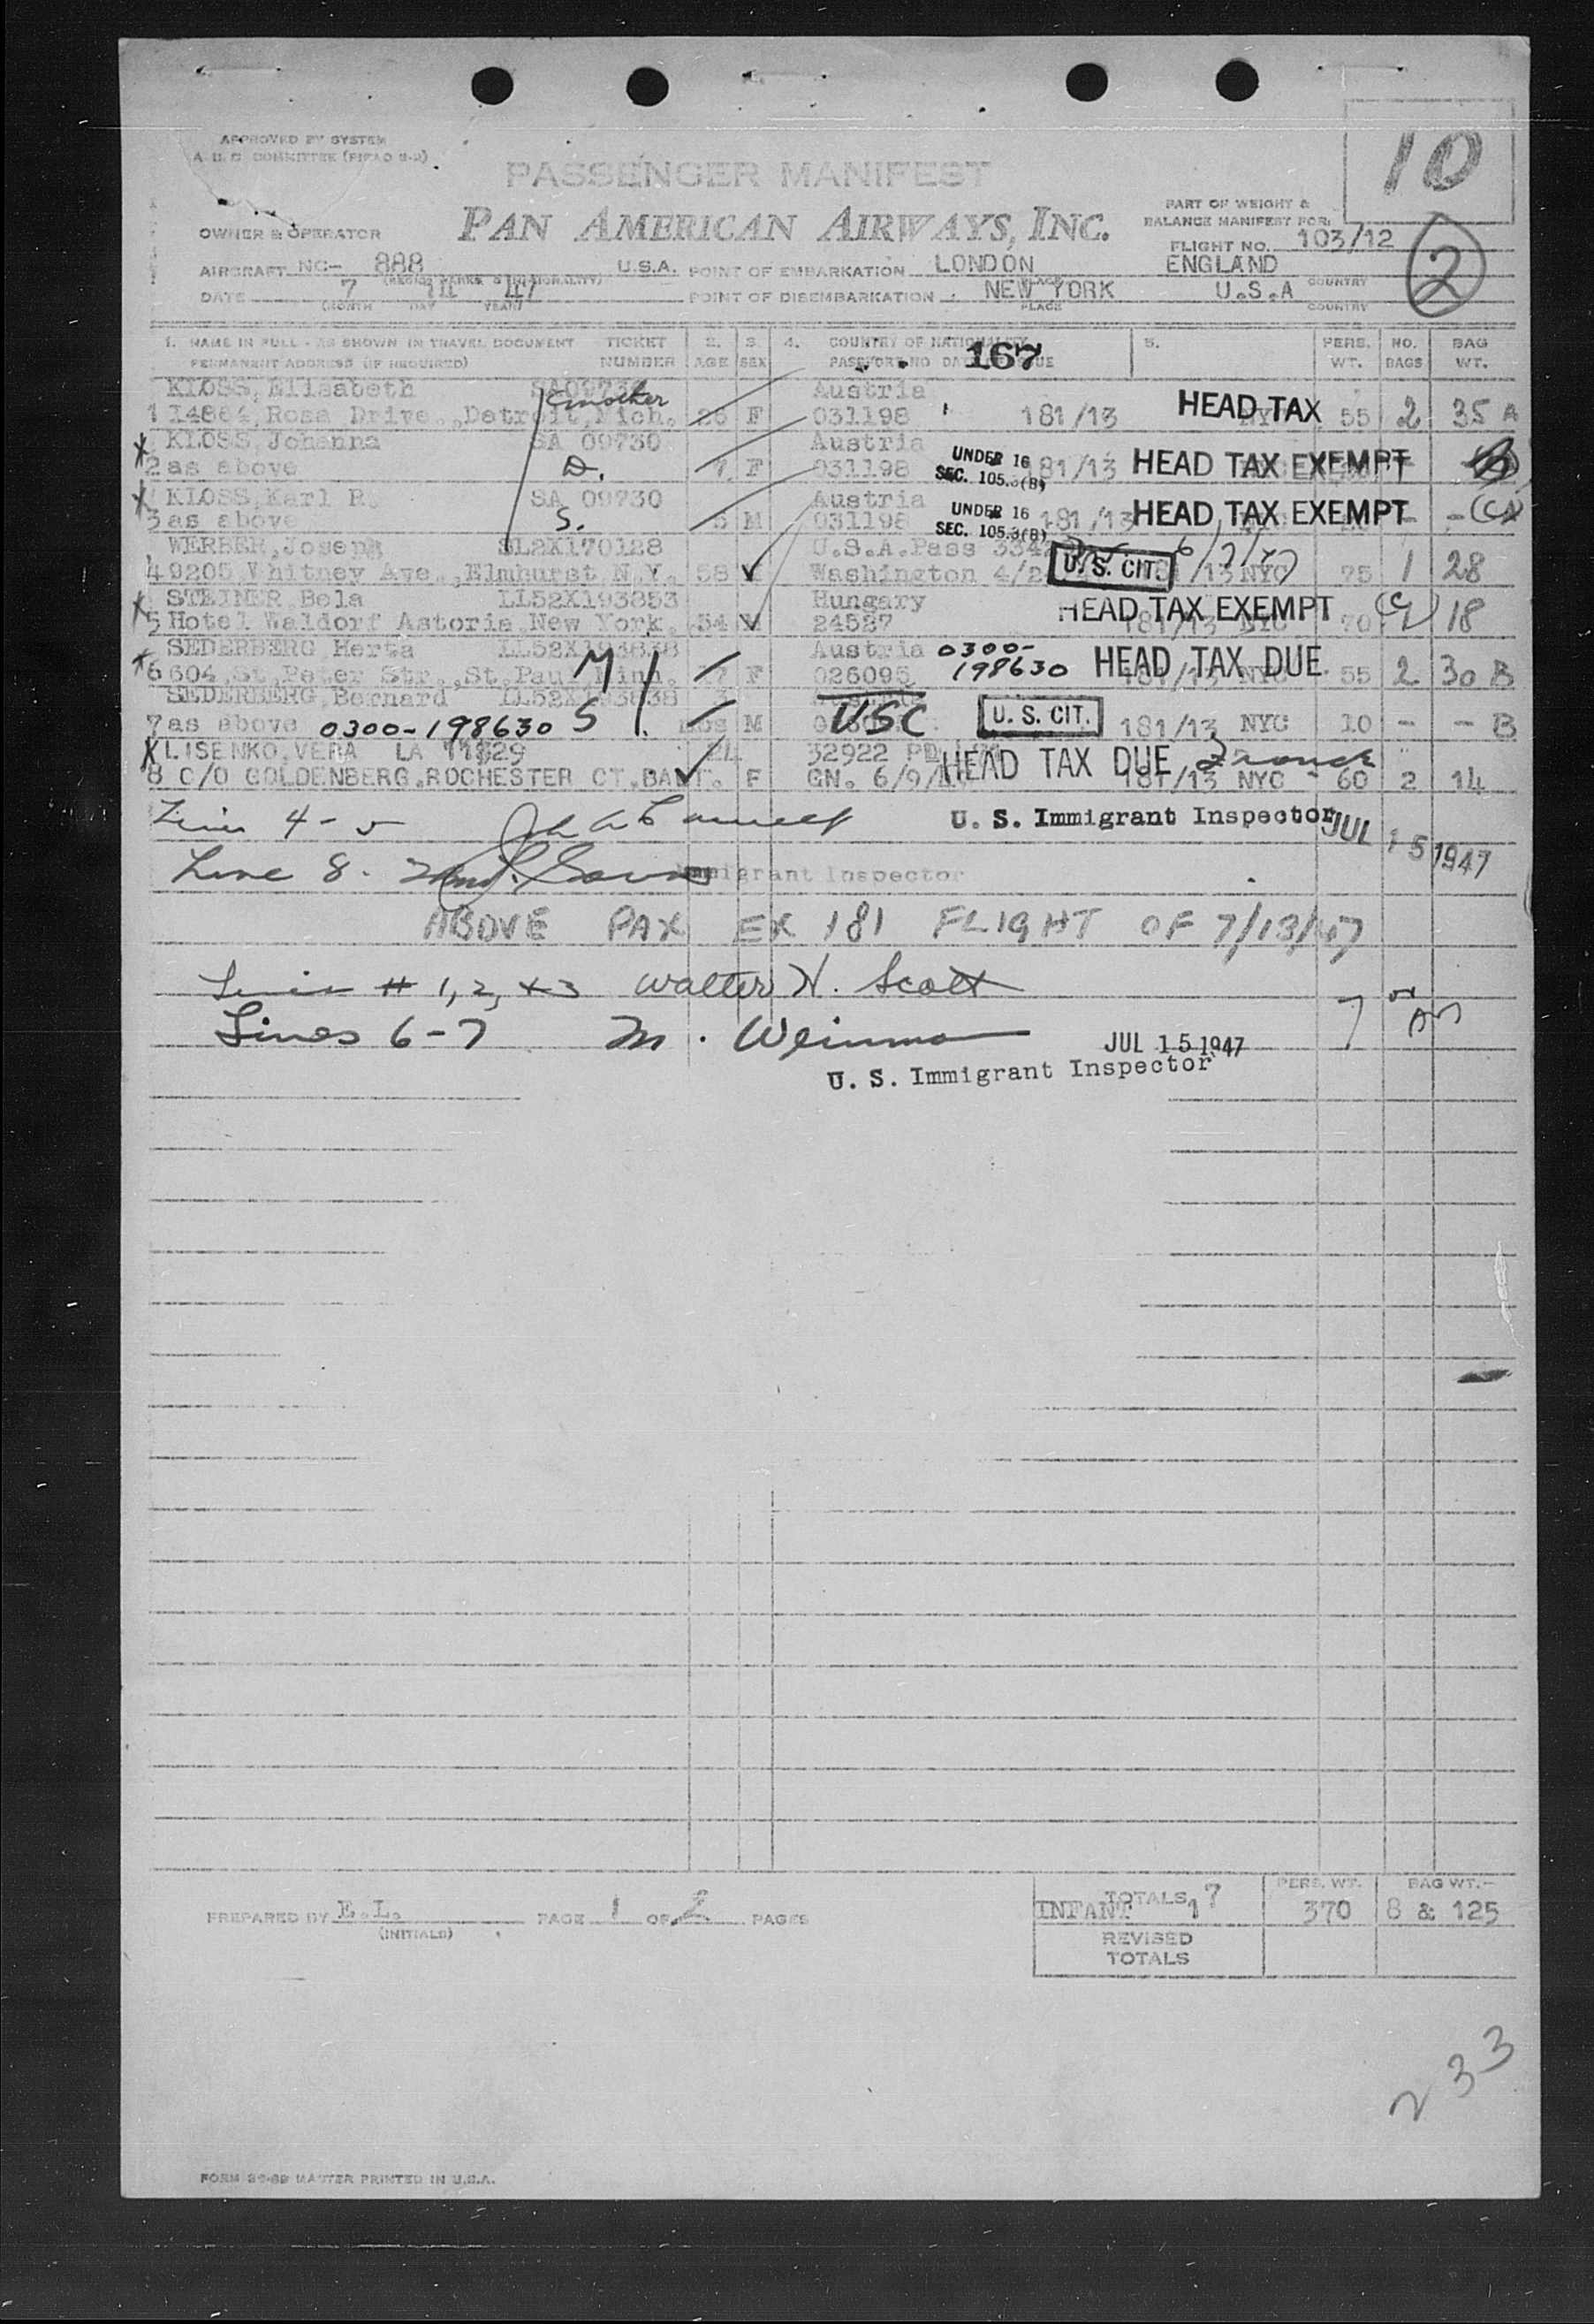 10
APPROVED BY SYSTEM
PASSENGER MANIFEST
PAN AMERICAN AIRWAYS, INC.
PART OF WEIGHT &
BALANCE MANIFEST FOR:
OWNER & OPERATOR
FLIGHT NO. 103/12
2
AIRCRAFT NC- 888 U.S.A. POINT OF EMBARKATION LONDON ENGLAND
PLACE COUNTRY
DATE 7 14 47 POINT OF DISEMBARKATION NEW YORK U.S.A
(MONTH DAY YEAR) PLACE COUNTRY
1. NAME IN FULL - AS SHOWN IN TRAVEL DOCUMENT TICKET 2. 3. 4. COUNTRY OF NATIONALITY 5. PERS. NO. BAG
PERMANENT ADDRESS (IF REQUIRED) NUMBER AGE SEX PASSPORT NO DATE OF ISSUE WT. BAGS WT.
167
KLOSS, Elisabeth Austria
mother
1 14884, Rosa Drive., Detroit, Mich. 26 F 031198 181/13 HEAD TAX 55 2 35 A
KLOSS, Johanna SA 09730 Austria
2 as above D. 7 F 031198 UNDER 16 SEC. 105.3(B) 181/13 HEAD TAX EXEMPT
KLOSS, Karl R. SA 09730 Austria
3 as above S. 5 M 031198 UNDER 16 SEC. 105.3(B) 181/13 HEAD TAX EXEMPT - -
WERBER, Joseph SL2X170128 U.S.A. Pass
4 9205 Whitney Ave., Elmhurst N.Y. 58 Washington U. S. CIT. /13 NYC 75 1 28
STEINER Bela LL52X193853 Hungary
5 Hotel Waldorf Astoria, New York. 54 24527 HEAD TAX EXEMPT 181/13 NYC 70 18
SEDERBERG Herta Austria 0300-
6 604, St. Peter Str., St. Paul, Minn. M F 026095 198630 HEAD TAX DUE 181/13 NYC 55 2 30 B
SEDERBERG, Bernard
7 as above 0300-198630 S M USC U. S. CIT. 181/13 NYC 10 - - B
X LISENKO, VERA LA 11829 32922
8 C/O GOLDENBERG. ROCHESTER CT. F GN. 6/9/ HEAD TAX DUE 181/13 NYC 60 2 14
4-5 U. S. Immigrant Inspector JUL 15 1947
Line 8. Immigrant Inspector
ABOVE PAX EX 181 FLIGHT OF 7/13/47
Lines # 1, 2, +3 Walter H. Scott
Lines 6-7 M. Weinman JUL 15 1947
U. S. Immigrant Inspector
TOTALS 7 PERS. WT. BAG WT.
PREPARED BY E.L. PAGE 1 OF 2 PAGES INFANT 1 370 8 & 125
(INITIALS)
REVISED
TOTALS
233
PRINTED IN U.S.A.